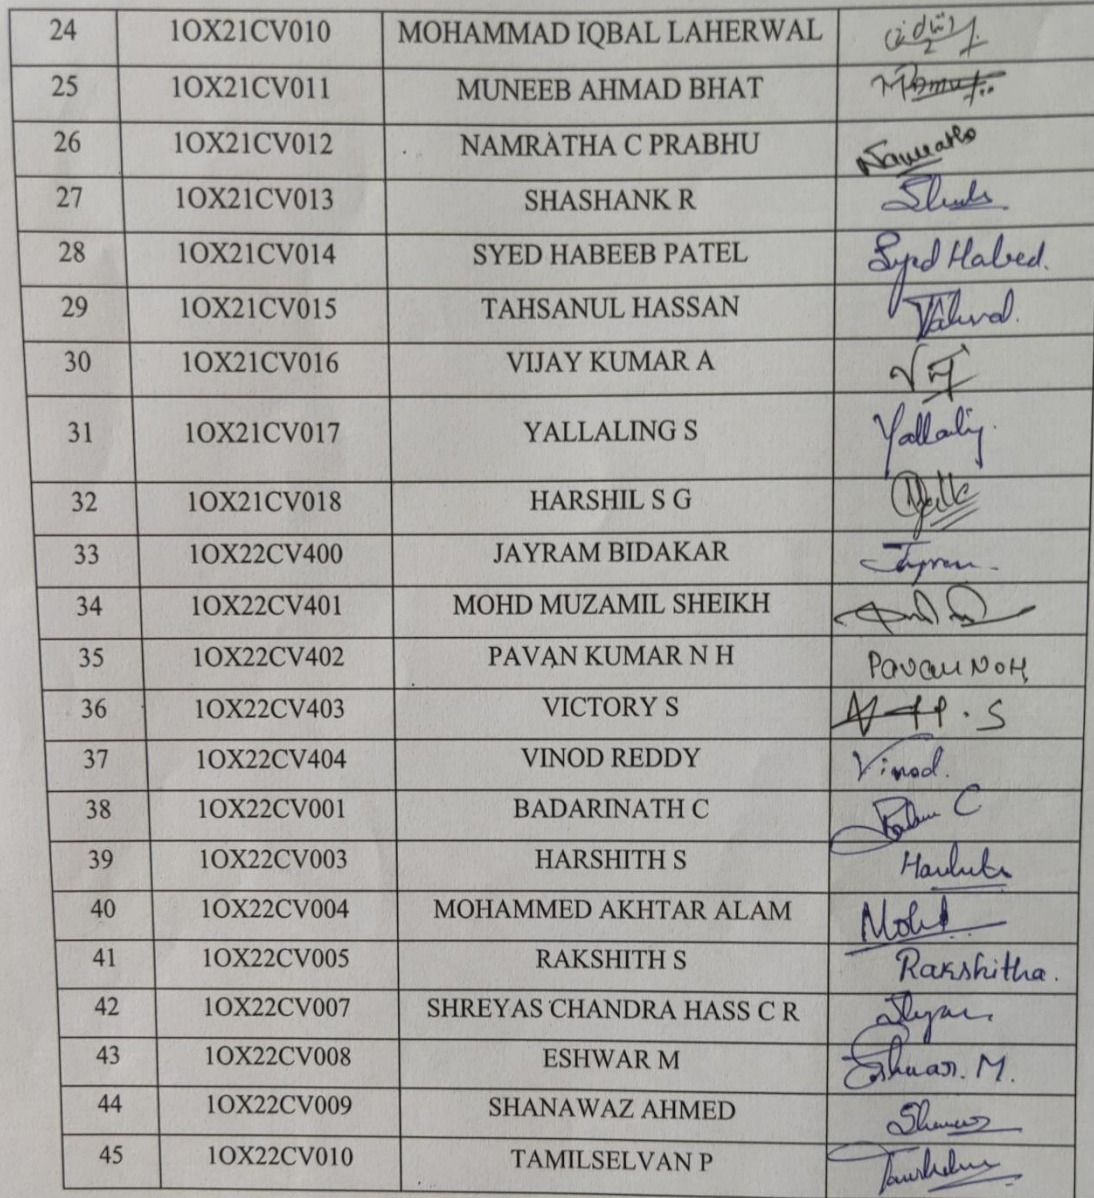 24 1OX21CV010 MOHAMMAD IQBAL LAHERWAL
25 1OX21CV011 MUNEEB AHMAD BHAT
26 1OX21CV012 NAMRATHA C PRABHU Namratha
27 1OX21CV013 SHASHANK R
28 1OX21CV014 SYED HABEEB PATEL Syed Habeed.
29 1OX21CV015 TAHSANUL HASSAN
30 1OX21CV016 VIJAY KUMAR A
31 1OX21CV017 YALLALING S Yallaling.
32 1OX21CV018 HARSHIL S G
33 1OX22CV400 JAYRAM BIDAKAR
34 1OX22CV401 MOHD MUZAMIL SHEIKH
35 1OX22CV402 PAVAN KUMAR N H Pavan NOH
36 1OX22CV403 VICTORY S
37 1OX22CV404 VINOD REDDY Vinod.
38 1OX22CV001 BADARINATH C
39 1OX22CV003 HARSHITH S
40 1OX22CV004 MOHAMMED AKHTAR ALAM Mohd
41 1OX22CV005 RAKSHITH S Rakshitha.
42 1OX22CV007 SHREYAS CHANDRA HASS C R
43 1OX22CV008 ESHWAR M Eshwar. M.
44 1OX22CV009 SHANAWAZ AHMED
45 1OX22CV010 TAMILSELVAN P